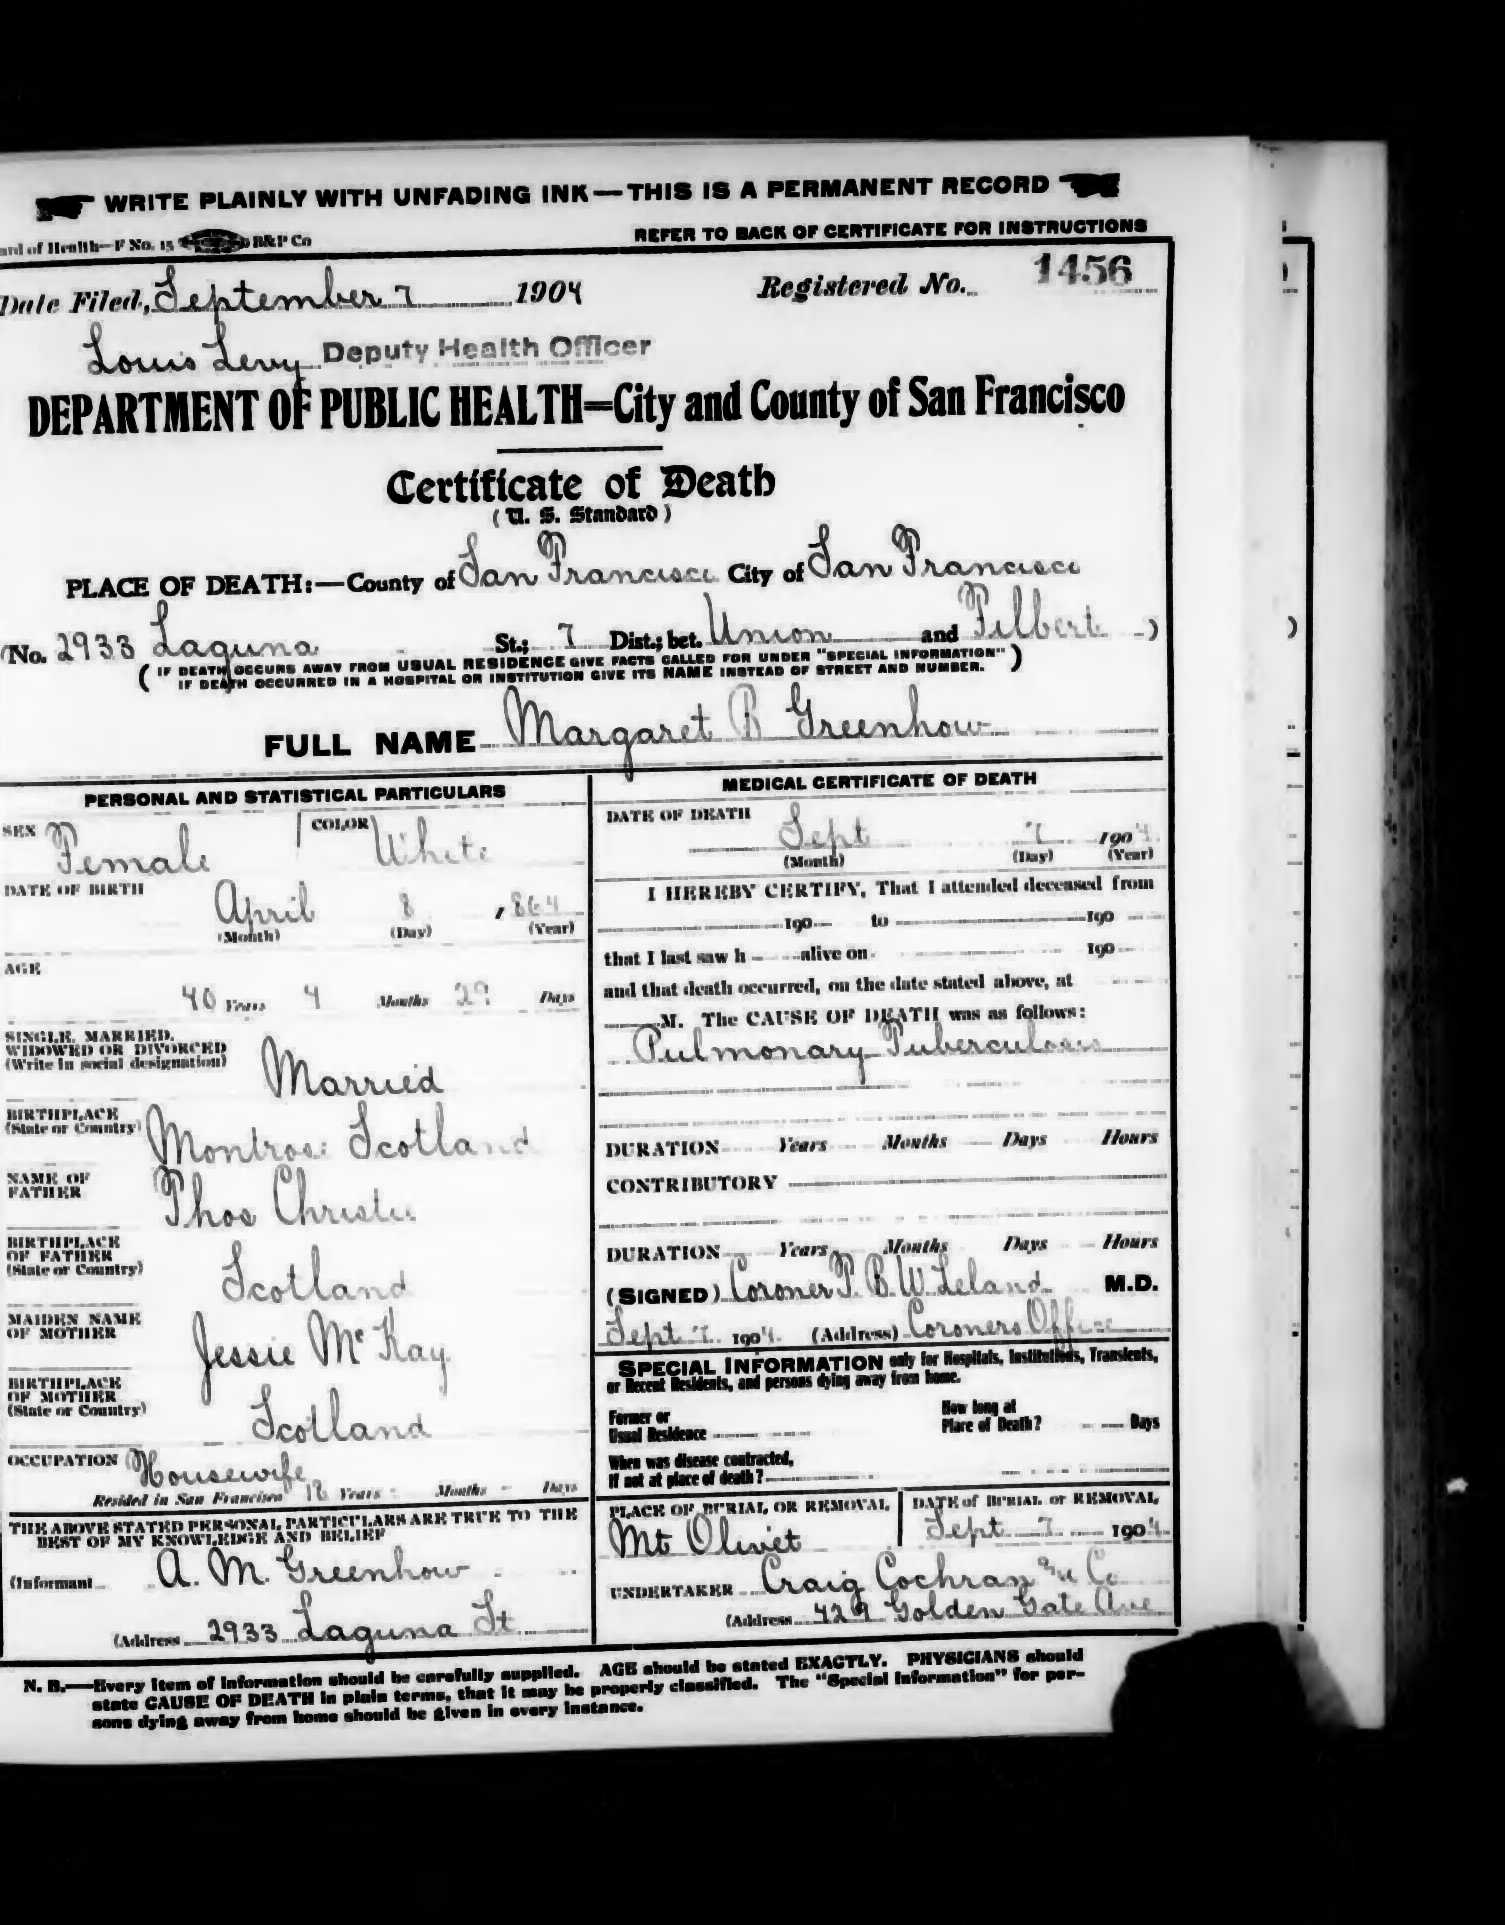 WRITE PLAINLY WITH UNFADING INK — THIS IS A PERMANENT RECORD
ard of Health—F No. 15 B&P Co REFER TO BACK OF CERTIFICATE FOR INSTRUCTIONS
Date Filed, September 7 1904 Registered No. 1456
Louis Levy Deputy Health Officer
DEPARTMENT OF PUBLIC HEALTH=City and County of San Francisco
Certificate of Death
( U. S. Standard )
PLACE OF DEATH:—County of San Francisco City of San Francisco
(No. 2933 Laguna St.; 7 Dist.; bet. Union and Filbert )
( IF DEATH OCCURS AWAY FROM USUAL RESIDENCE GIVE FACTS CALLED FOR UNDER "SPECIAL INFORMATION" )
IF DEATH OCCURRED IN A HOSPITAL OR INSTITUTION GIVE ITS NAME INSTEAD OF STREET AND NUMBER.
FULL NAME Margaret B Greenhow
PERSONAL AND STATISTICAL PARTICULARS
SEX Female COLOR White
DATE OF BIRTH
April 8 , 864
(Month) (Day) (Year)
AGE
40 Years 4 Months 29 Days
SINGLE, MARRIED,
WIDOWED OR DIVORCED
(Write in social designation) Married
BIRTHPLACE
(State or Country) Montrose Scotland
NAME OF
FATHER Thos Christie
BIRTHPLACE
OF FATHER
(State or Country) Scotland
MAIDEN NAME
OF MOTHER Jessie McKay
BIRTHPLACE
OF MOTHER
(State or Country) Scotland
OCCUPATION Housewife
Resided in San Francisco 18 Years Months Days
THE ABOVE STATED PERSONAL PARTICULARS ARE TRUE TO THE
BEST OF MY KNOWLEDGE AND BELIEF
(Informant A. M. Greenhow
(Address 2933 Laguna St
MEDICAL CERTIFICATE OF DEATH
DATE OF DEATH
Sept 7 1904
(Month) (Day) (Year)
I HEREBY CERTIFY, That I attended deceased from
190 to 190
that I last saw h alive on 190
and that death occurred, on the date stated above, at
M. The CAUSE OF DEATH was as follows:
Pulmonary Tuberculosis
DURATION Years Months Days Hours
CONTRIBUTORY
DURATION Years Months Days Hours
(SIGNED) Coroner T. B. W. Leland M.D.
Sept 7 1904 (Address) Coroners Office
SPECIAL INFORMATION only for Hospitals, Institutions, Transients,
or Recent Residents, and persons dying away from home.
Former or
Usual Residence
How long at
Place of Death? Days
When was disease contracted,
If not at place of death?
PLACE OF BURIAL OR REMOVAL
Mt Olivet
DATE of BURIAL or REMOVAL
Sept 7 1904
UNDERTAKER Craig Cochran & Co
(Address 429 Golden Gate Ave
N. B.—Every item of information should be carefully supplied. AGE should be stated EXACTLY. PHYSICIANS should
state CAUSE OF DEATH in plain terms, that it may be properly classified. The "Special Information" for per-
sons dying away from home should be given in every instance.